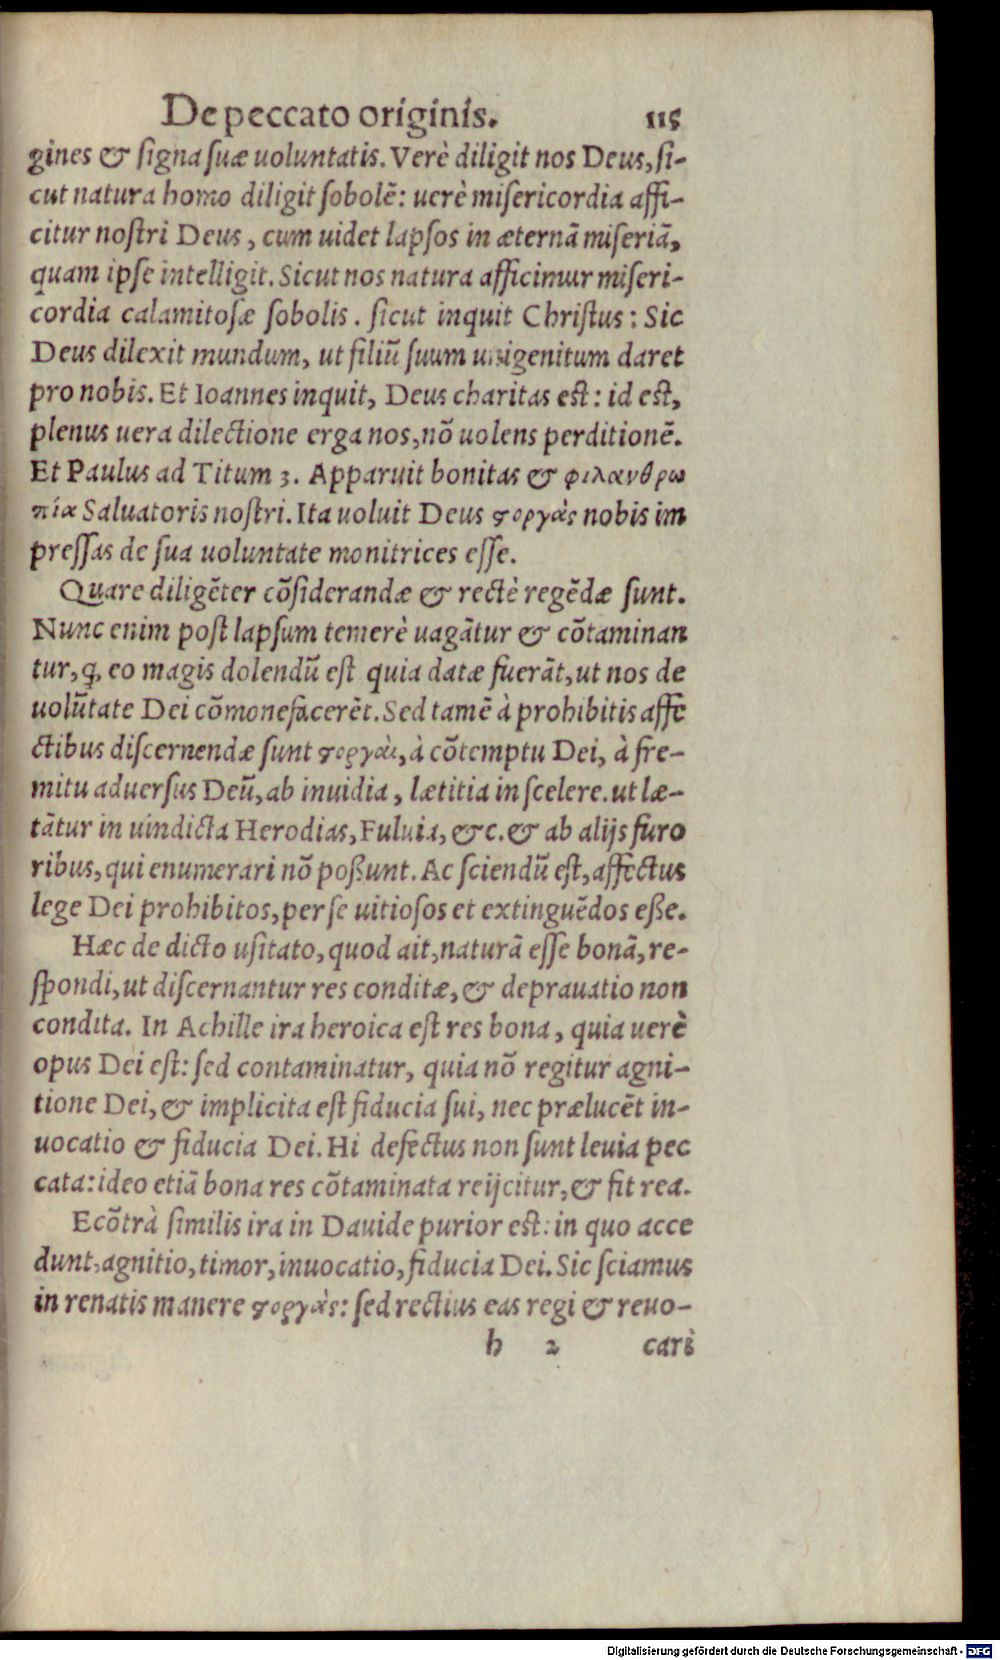 De peccato originis. 115
gines & ſigna ſuæ uoluntatis. Verè diligit nos Deus, ſi-
cut natura homo diligit ſobolẽ: uerè miſericordia affi-
citur noſtri Deus, cum uidet lapſos in æternã miſeriã,
quam ipſe intelligit. Sicut nos natura afficimur miſeri-
cordia calamitoſæ ſobolis. ſicut inquit Chriſtus: Sic
Deus dilexit mundum, ut filiũ ſuum unigenitum daret
pro nobis. Et Ioannes inquit, Deus charitas eſt: id eſt,
plenus uera dilectione erga nos, nõ uolens perditionẽ.
Et Paulus ad Titum 3. Apparuit bonitas & φιλανθρω
πία Saluatoris noſtri. Ita uoluit Deus ϛοργὰς nobis im
preſſas de ſua uoluntate monitrices eſſe.
Quare diligẽter cõſiderandæ & rectè regẽdæ ſunt.
Nunc enim poſt lapſum temerè uagãtur & cõtaminan
tur, ꝙ eo magis dolendũ eſt quia datæ fuerãt, ut nos de
uolũtate Dei cõmonefacerẽt. Sed tamẽ à prohibitis affe
ctibus diſcernendæ ſunt ϛοργὰι, à cõtemptu Dei, à fre-
mitu aduerſus Deũ, ab inuidia, lætitia in ſcelere. ut læ-
tãtur in uindicta Herodias, Fuluia, &c. & ab alijs furo
ribus, qui enumerari nõ poßunt. Ac ſciendũ eſt, affectus
lege Dei prohibitos, per ſe uitioſos et extinguẽdos eße.
Hæc de dicto uſitato, quod ait, naturã eſſe bonã, re-
ſpondi, ut diſcernantur res conditæ, & deprauatio non
condita. In Achille ira heroica eſt res bona, quia uerè
opus Dei eſt: ſed contaminatur, quia nõ regitur agni-
tione Dei, & implicita eſt fiducia ſui, nec prælucẽt in-
uocatio & fiducia Dei. Hi defectus non ſunt leuia pec
cata: ideo etiã bona res cõtaminata reijcitur, & fit rea.
Ecõtrà ſimilis ira in Dauide purior eſt: in quo acce
dunt, agnitio, timor, inuocatio, fiducia Dei. Sic ſciamus
in renatis manere ϛοργὰς: ſed rectius eas regi & reuo-
h 2 cari
Digitalisierung gefördert durch die Deutsche Forschungsgemeinschaft - DFG